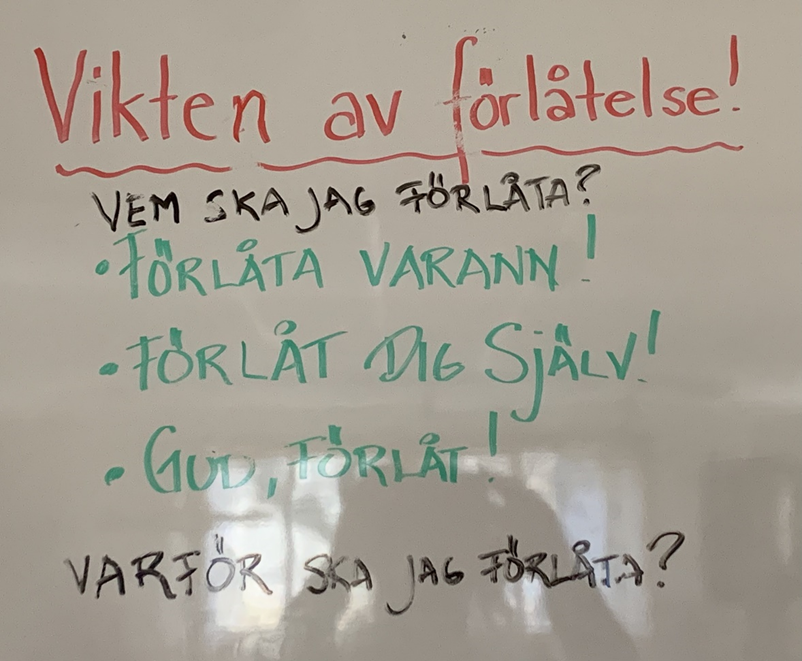 Vikten av förlåtelse!
VEM SKA JAG FÖRLÅTA?
• FÖRLÅTA VARANN!
• FÖRLÅT DIG SJÄLV!
• GUD, FÖRLÅT!
VARFÖR SKA JAG FÖRLÅTA?